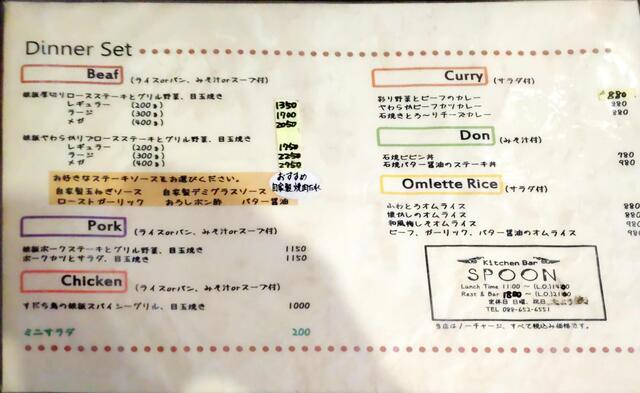 Dinner Set
Beaf (ライスorパン、みそ汁orスープ付)
鉄板厚切りロースステーキとグリル野菜、目玉焼き
レギュラー (200g) 1350
ラージ (300g) 1700
メガ (400g) 2050
鉄板やわらかリブロースステーキとグリル野菜、目玉焼き
レギュラー (200g) 1750
ラージ (300g) 2250
メガ (400g) 2750
お好きなステーキソースをお選びください。
自家製玉ねぎソース 自家製デミグラスソース
ローストガーリック おろしポン酢 バター醤油
おすすめ
自家製焼肉だれ
Pork (ライスorパン、みそ汁orスープ付)
鉄板ポークステーキとグリル野菜、目玉焼き 1150
ポークカツとサラダ、目玉焼き 1150
Chicken (ライスorパン、みそ汁orスープ付)
すだち鳥の鉄板スパイシーグリル、目玉焼き 1000
ミニサラダ 200
Curry (サラダ付)
彩り野菜とビーフのカレー 880
やわらかビーフカツカレー 980
石焼きとろ〜りチーズカレー 980
Don (みそ汁付)
石焼ビビン丼 780
石焼バター醤油のステーキ丼 980
Omlette Rice (サラダ付)
ふわとろオムライス 880
懐かしのオムライス 880
和風梅しそオムライス 980
ビーフ、ガーリック、バター醤油のオムライス 980
Kitchen Bar
SPOON
Lunch Time 11:00 〜 (L.O.)14:00
Rest & Bar 18:00 〜 (L.O.)21:00
定休日 日曜、祝日
TEL 088-652-6551
当店はノーチャージ、すべて税込み価格です。